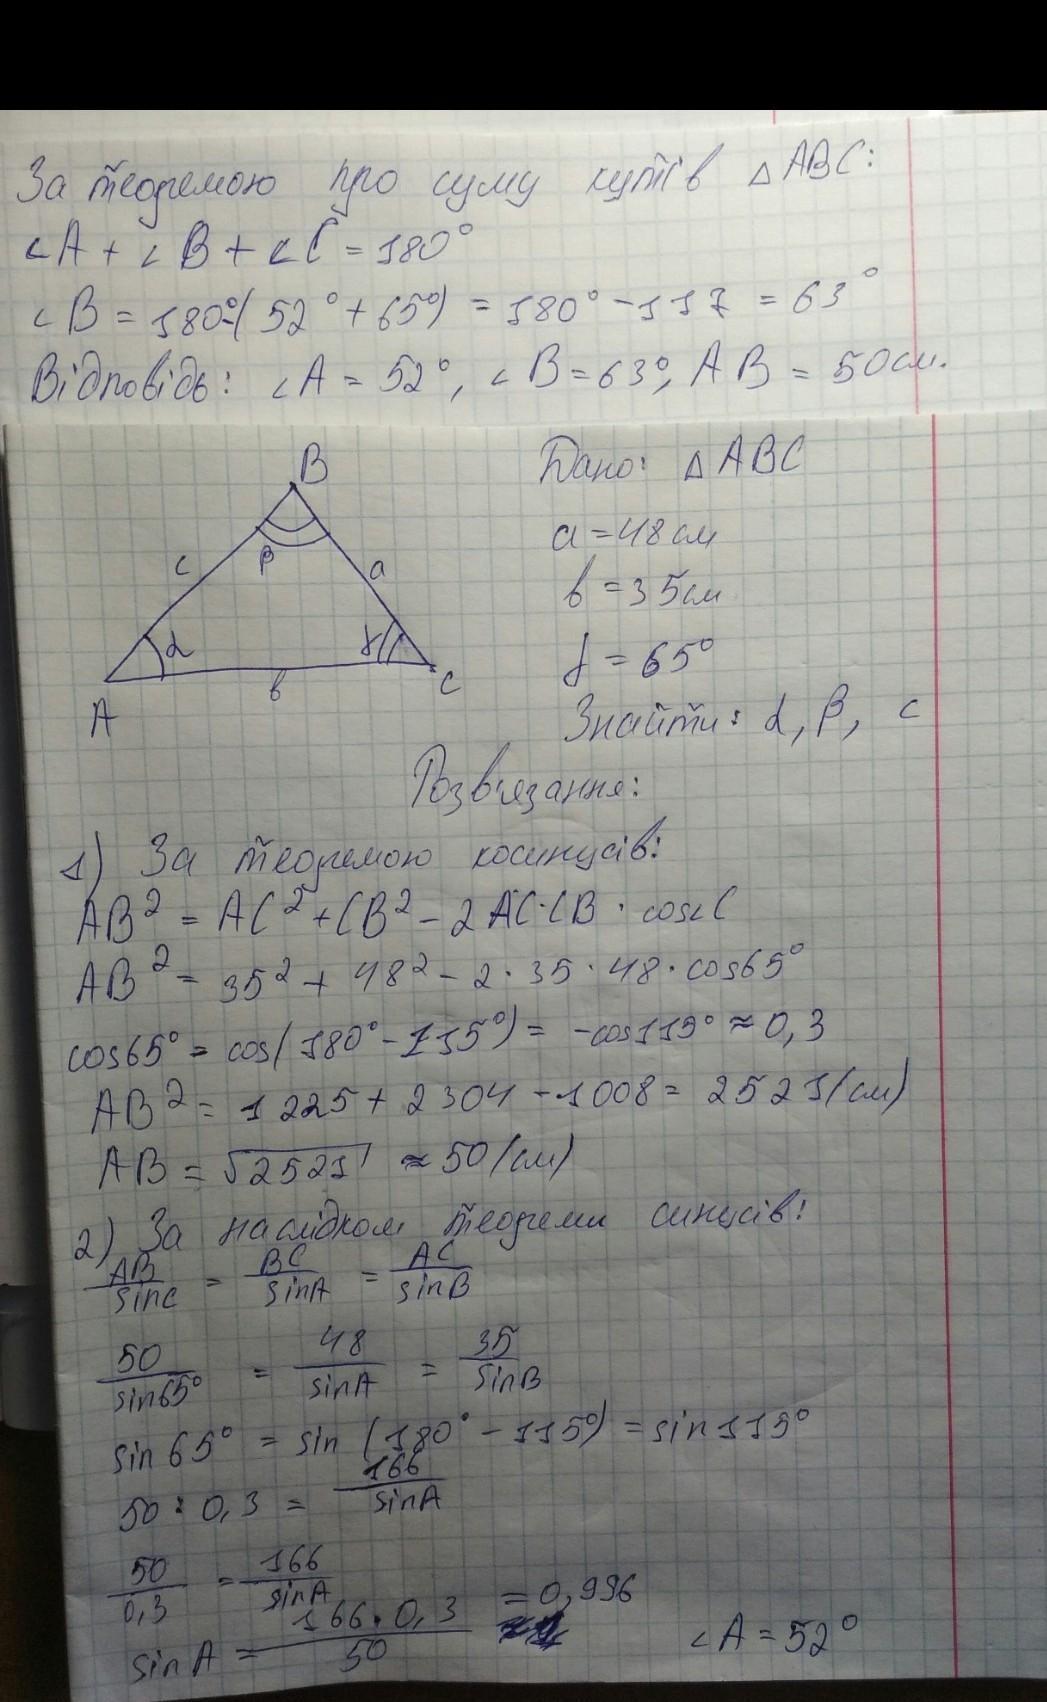 За теоремою про суму кутів △ABC:
∠A + ∠B + ∠C = 180°
∠B = 180°-(52° + 65°) = 180° - 117 = 63°
Відповідь: ∠A = 52°, ∠B = 63°, AB = 50см.
B
c
β
a
α
γ
A
в
C
Дано: △ABC
a = 48 см
в = 35 см
γ = 65°
Знайти: α, β, c
Розв'язання:
1) За теоремою косинусів:
AB² = AC² + CB² - 2 AC·CB · cos∠C
AB² = 35² + 48² - 2·35·48·cos65°
cos65° = cos(180° - 115°) = -cos115° ≈ 0,3
AB² = 1225 + 2304 - 1008 = 2521 (см)
AB = √2521 ≈ 50 (см)
2) За наслідком теореми синусів:
AB/sinC = BC/sinA = AC/sinB
50/sin65° = 48/sinA = 35/sinB
sin 65° = sin (180° - 115°) = sin115°
50 : 0,3 = 166/sinA
50/0,3 = 166/sinA
sin A = 166·0,3/50 = 0,996
∠A = 52°